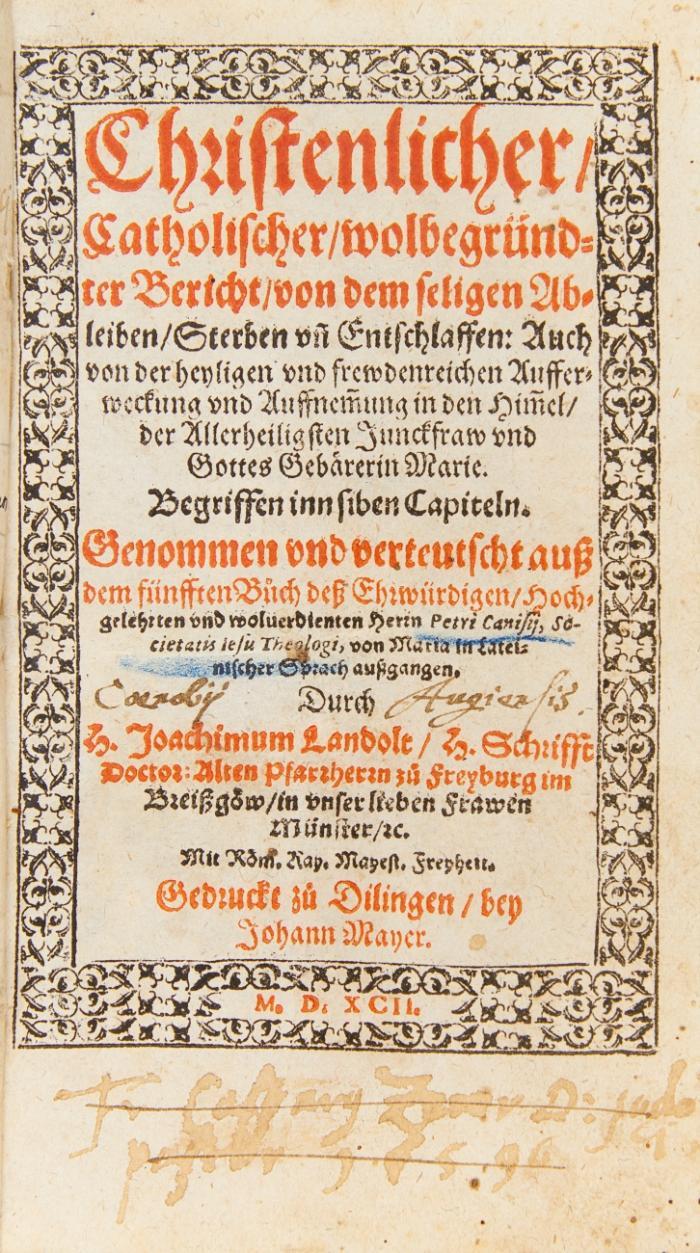 Christenlicher/
Catholischer/wolbegründ=
ter Bericht/von dem seligen Ab=
leiben/Sterben vñ Entschlaffen: Auch
von der heyligen vnd frewdenreichen Auffer=
weckung vnd Auffnem̃ung in den Him̃el/
der Allerheiligsten Junckfraw vnd
Gottes Gebärerin Marie.
Begriffen inn siben Capiteln.
Genommen vnd verteutscht auß
dem fünfften Bůch deß Ehrwürdigen/Hoch=
gelehrten vnd woluerdienten Herin Petri Canisij, So-
cietatis Iesu Theologi, von Maria in Latei=
nischer Sprach außgangen.
Coenobij Durch Augiensis.
H. Joachimum Landolt / H. Schrifft
Doctor: Alten Pfarrherrn zů Freyburg im
Breißgöw/in vnser lieben Frawen
Münster/ꝛc.
Mit Röm. Kay. Mayest. Freyheit.
Gedruckt zů Dilingen / bey
Johann Mayer.
M. D. XCII.